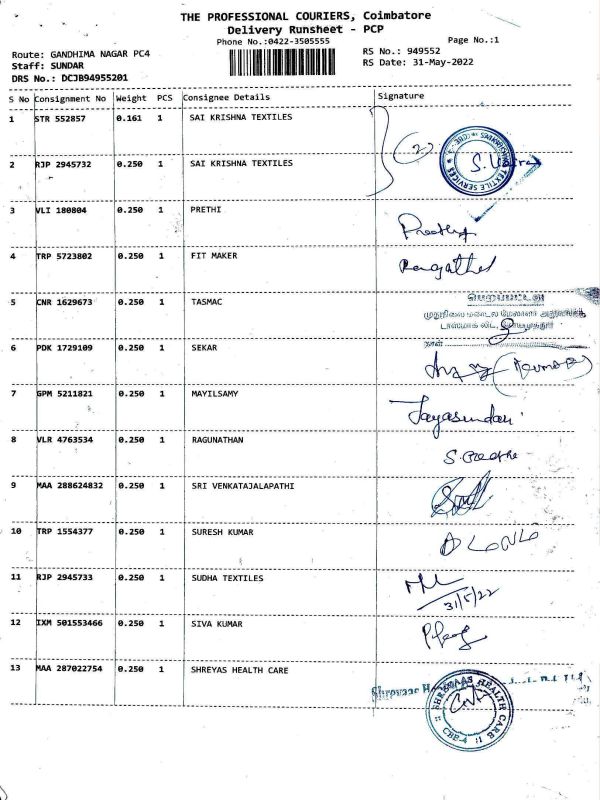 THE PROFESSIONAL COURIERS, Coimbatore
Delivery Runsheet - PCP
Phone No.:0422-3505555
Page No.:1
Route: GANDHIMA NAGAR PC4
RS No.: 949552
Staff: SUNDAR
RS Date: 31-May-2022
DRS No.: DCJB94955201
S No Consignment No Weight PCS Consignee Details Signature
1 STR 552857 0.161 1 SAI KRISHNA TEXTILES
2 RJP 2945732 0.250 1 SAI KRISHNA TEXTILES
3 VLI 180804 0.250 1 PRETHI
4 TRP 5723802 0.250 1 FIT MAKER
5 CNR 1629673 0.250 1 TASMAC
6 PDK 1729109 0.250 1 SEKAR
7 GPM 5211821 0.250 1 MAYILSAMY
Jayasundari
8 VLR 4763534 0.250 1 RAGUNATHAN
9 MAA 288624832 0.250 1 SRI VENKATAJALAPATHI
10 TRP 1554377 0.250 1 SURESH KUMAR
11 RJP 2945733 0.250 1 SUDHA TEXTILES
31/5/22
12 IXM 501553466 0.250 1 SIVA KUMAR
13 MAA 287022754 0.250 1 SHREYAS HEALTH CARE
SHREYAAS HEALTH CARE
CBE-4